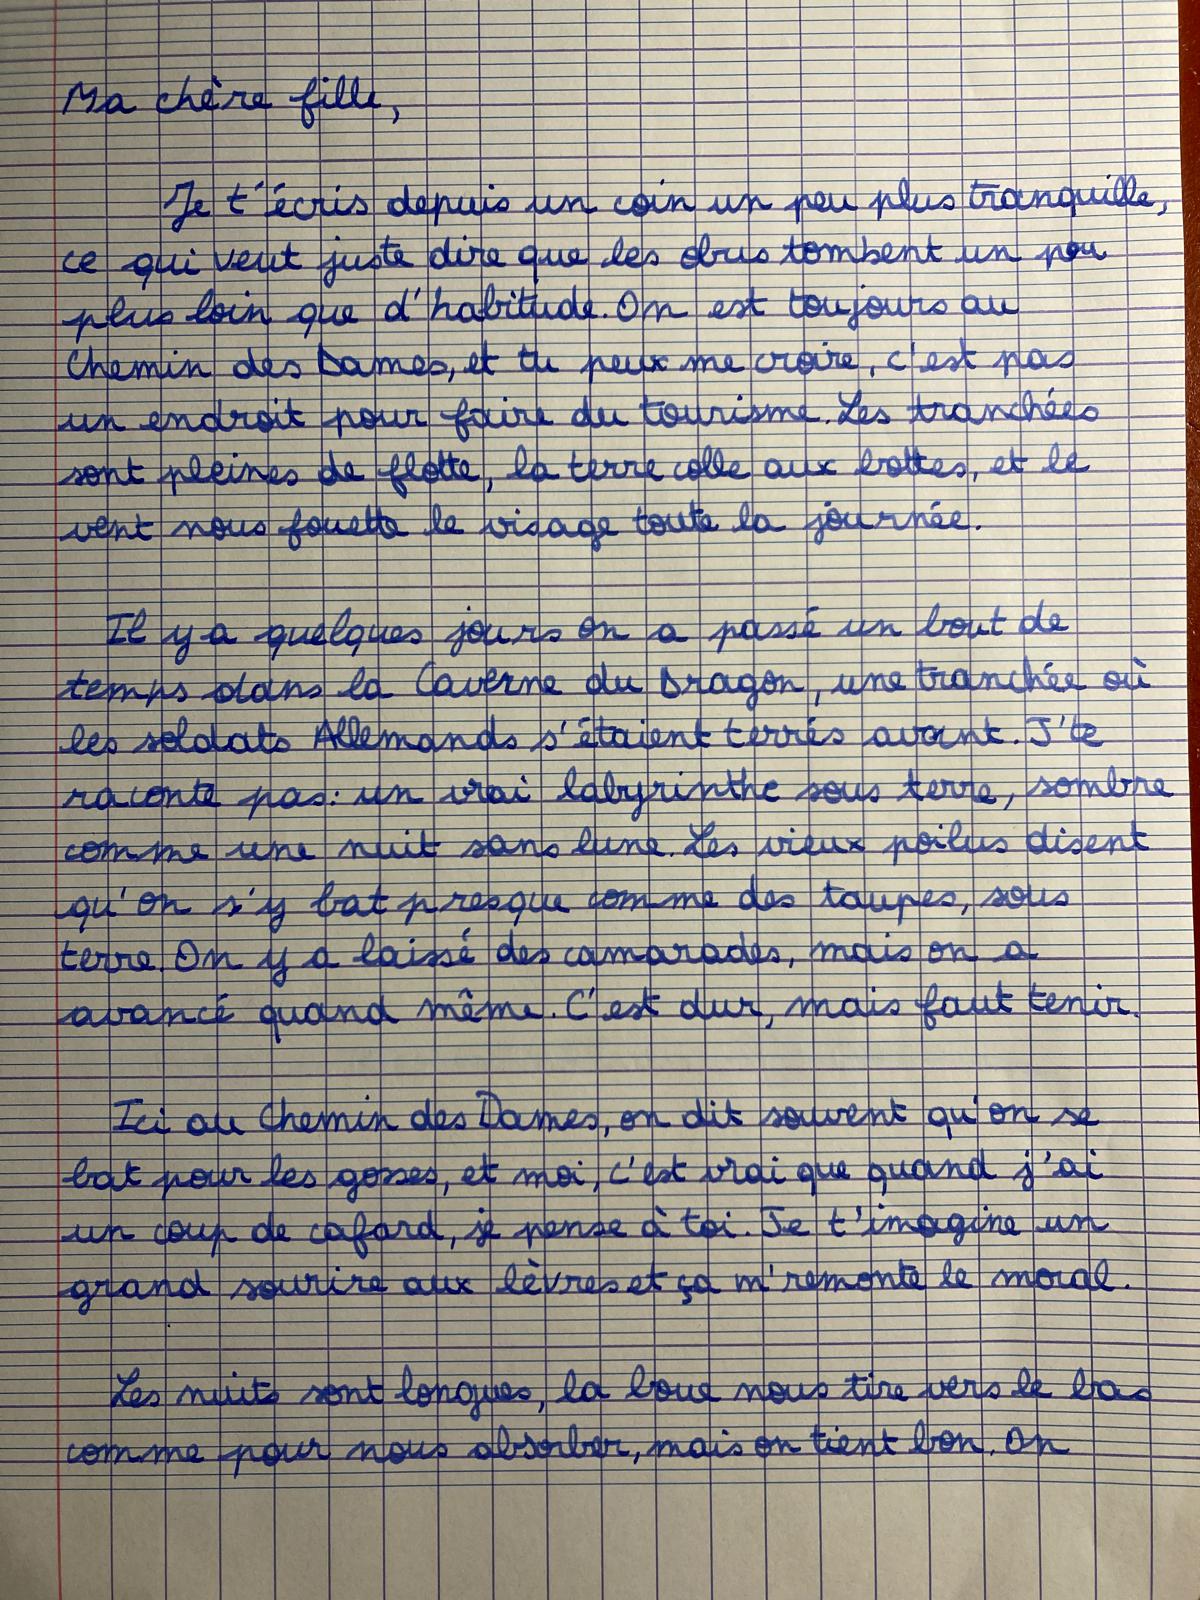 Ma chère fille,
Je t'écris depuis un coin un peu plus tranquille,
ce qui veut juste dire que les obus tombent un peu
plus loin que d'habitude. On est toujours au
Chemin des Dames, et tu peux me croire, c'est pas
un endroit pour faire du tourisme. Les tranchées
sont pleines de flotte, la terre colle aux bottes, et le
vent nous fouette le visage toute la journée.
Il y a quelques jours on a passé un bout de
temps dans la Caverne du Dragon, une tranchée où
les soldats Allemands s'étaient terrés avant. J'te
raconte pas : un vrai labyrinthe sous terre, sombre
comme une nuit sans lune. Les vieux poilus disent
qu'on s'y bat presque comme des taupes, sous
terre. On y a laissé des camarades, mais on a
avancé quand même. C'est dur, mais faut tenir.
Ici au Chemin des Dames, on dit souvent qu'on se
bat pour les gosses, et moi, c'est vrai que quand j'ai
un coup de cafard, je pense à toi. Je t'imagine un
grand sourire aux lèvres et ça m'remonte le moral.
Les nuits sont longues, la boue nous tire vers le bas
comme pour nous absorber, mais on tient bon. On